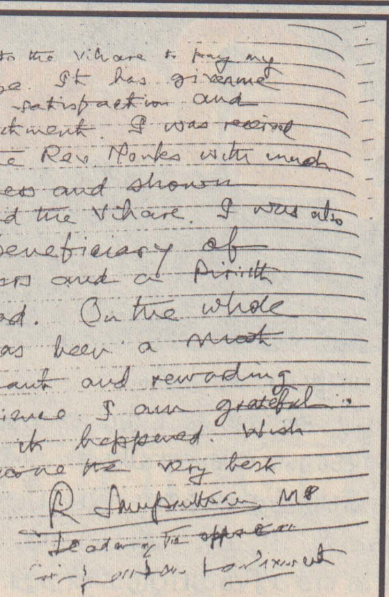 to the Vihare to pay my
ge. It has given me
satisfaction and
tment. I was received
e Rev Monks with much
ess and shown
d the Vihare. I was also
beneficiary of
ers and a Pirith
ad. On the whole
as been a most
ant and rewarding
ience I am grateful
it happened. Wish
one the very best
R MP
Leader of the opposition